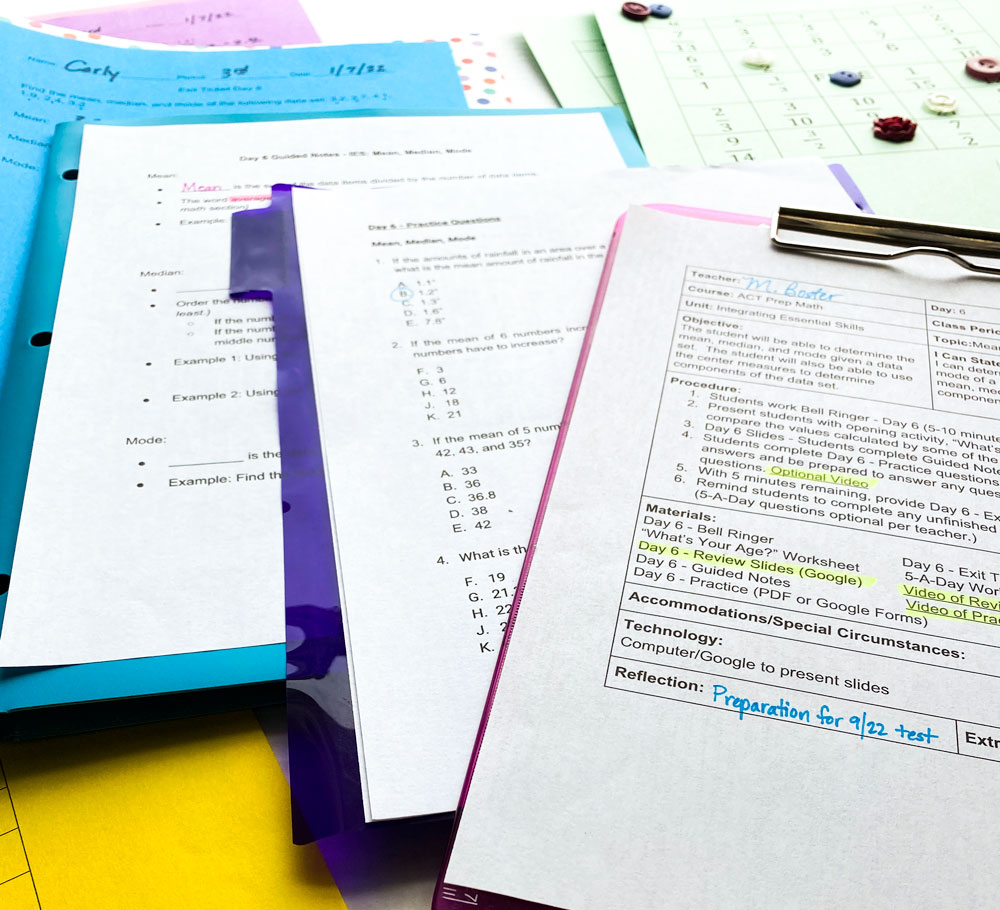 1/7/22
Name: Carly Period: 3rd Date: 1/7/22
Exit Ticket Day 6
Find the mean, median, and mode of the following data set:
Mean:
Median
Mode:
Day 6 Guided Notes - IES: Mean, Median, Mode
Mean:
Mean is the data items divided by the number of data items.
The word average
math section)
Example:
Median:
Order the
least.)
If the num
If the num
middle num
Example 1: Using
Example 2: Using
Mode:
is the
Example: Find th
Day 6 - Practice Questions
Mean, Median, Mode
1. If the amounts of rainfall in an area over a
what is the mean amount of rainfall in the
A. 1.1"
B. 1.2"
C. 1.3"
D. 1.6"
E. 7.8"
2. If the mean of 6 numbers incr
numbers have to increase?
F. 3
G. 6
H. 12
J. 18
K. 21
3. If the mean of 5 num
42, 43, and 35?
A. 33
B. 36
C. 36.8
D. 38
E. 42
4. What is th
F. 19
G. 21.
H. 22
J. 2
K.
Teacher: M. Boster
Course: ACT Prep Math
Day: 6
Unit: Integrating Essential Skills
Class Perio
Objective:
The student will be able to determine the
mean, median, and mode given a data
set. The student will also be able to use
the center measures to determine
components of the data set.
Topic: Mean
I Can State
I can determ
mode of a
mean, med
component
Procedure:
1. Students work Bell Ringer - Day 6 (5-10 minute
2. Present students with opening activity, "What's
compare the values calculated by some of the
3. Day 6 Slides - Students complete Guided Note
4. Students complete Day 6 - Practice questions
answers and be prepared to answer any quest
questions. Optional Video
5. With 5 minutes remaining, provide Day 6 - Ex
6. Remind students to complete any unfinished
(5-A-Day questions optional per teacher.)
Materials:
Day 6 - Bell Ringer
"What's Your Age?" Worksheet
Day 6 - Review Slides (Google)
Day 6 - Guided Notes
Day 6 - Practice (PDF or Google Forms)
Day 6 - Exit T
5-A-Day Wor
Video of Revi
Video of Prac
Accommodations/Special Circumstances:
Technology:
Computer/Google to present slides
Reflection: Preparation for 9/22 test
Extr